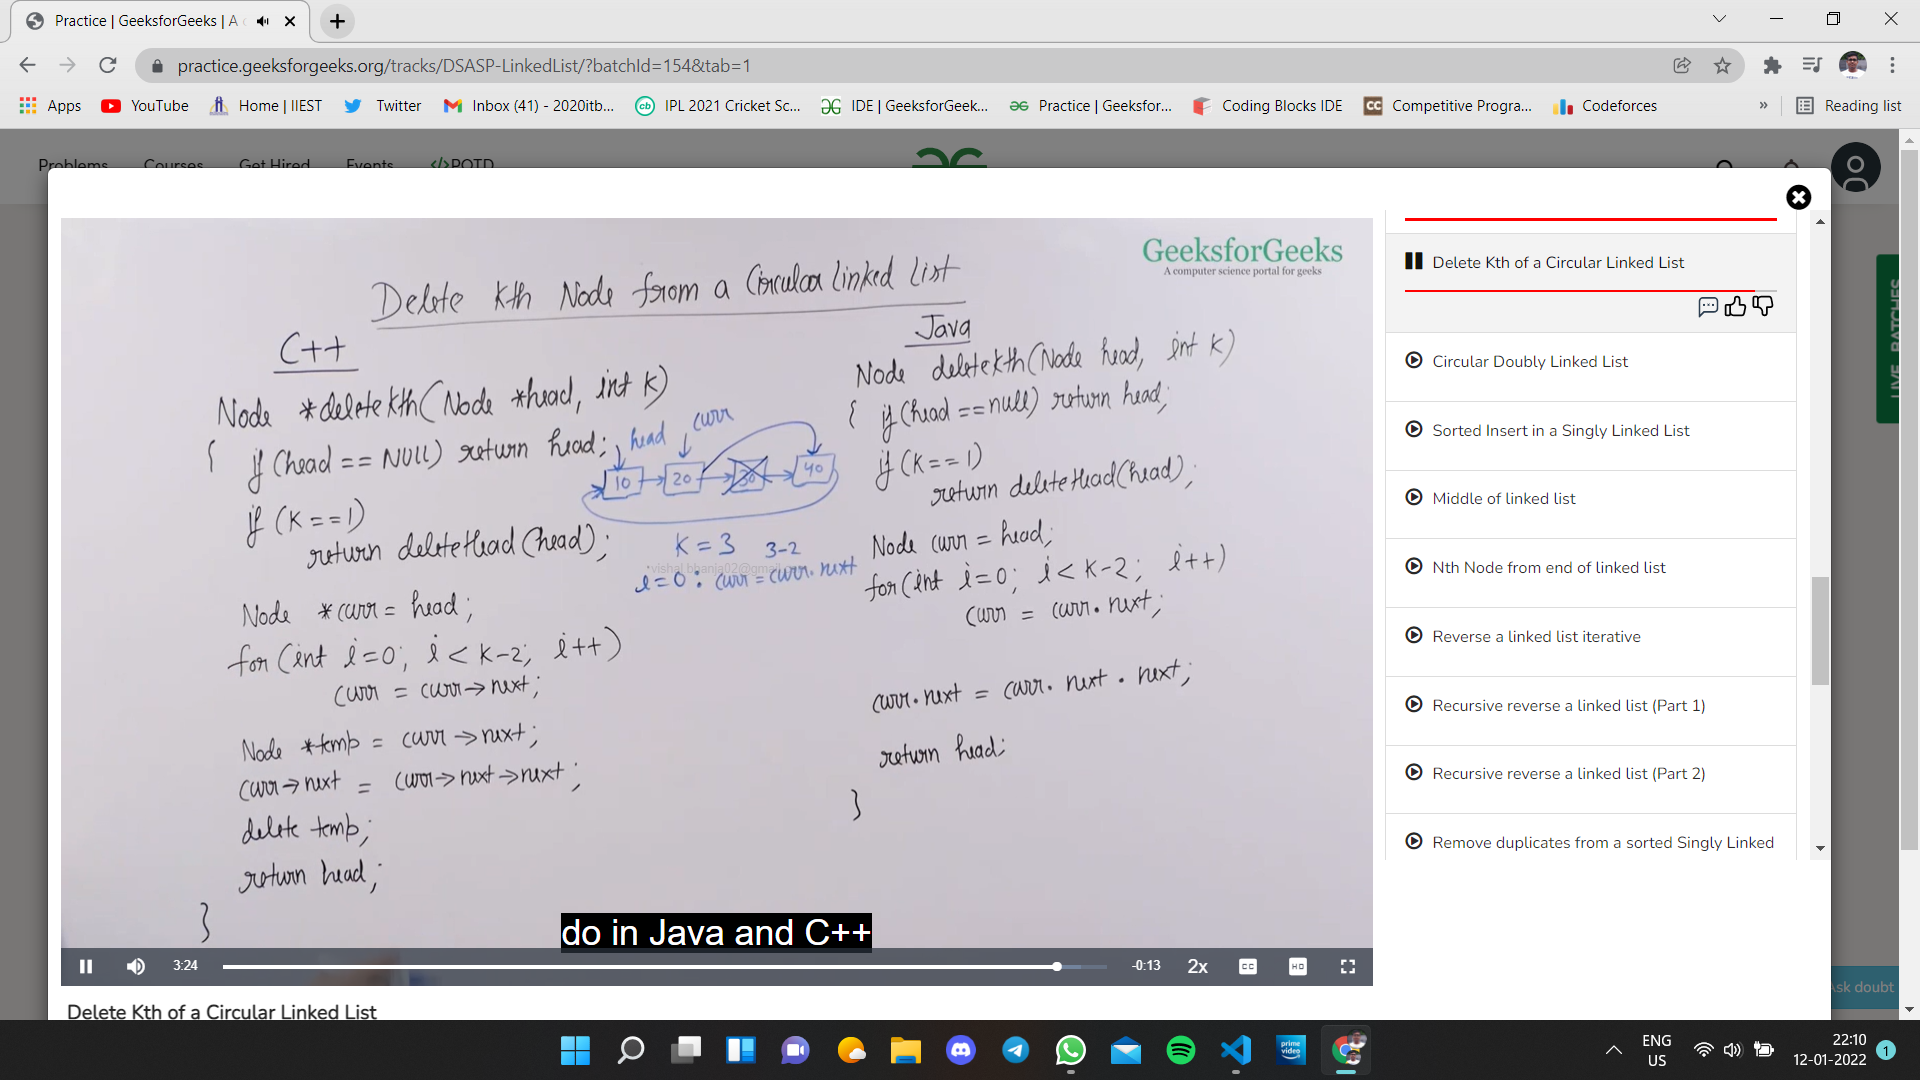 Practice | GeeksforGeeks | A
practice.geeksforgeeks.org/tracks/DSASP-LinkedList/?batchId=154&tab=1
Apps YouTube Home | IIEST Twitter Inbox (41) - 2020itb... IPL 2021 Cricket Sc... IDE | GeeksforGeek... Practice | Geeksfor... Coding Blocks IDE Competitive Progra... Codeforces » Reading list
Problems Courses Get Hired Events POTD
GeeksforGeeks
A computer science portal for geeks
Delete Kth Node from a Circular Linked List
C++
Node *deleteKth(Node *head, int K)
{ if (head == NULL) return head;
if (K==1)
return deleteHead(head);
Node *curr = head;
for(int i=0; i < K-2; i++)
curr = curr→next;
Node *temp = curr→next;
curr→next = curr→next→next;
delete temp;
return head;
}
head curr
10 20 30 40
K = 3 3-2
i=0: curr = curr.next
Java
Node deleteKth(Node head, int K)
{ if (head == null) return head;
if (K==1)
return deleteHead(head);
Node curr = head;
for(int i=0; i < K-2; i++)
curr = curr.next;
curr.next = curr.next.next;
return head;
}
do in Java and C++
3:24 -0:13 2x CC HD
Delete Kth of a Circular Linked List
Delete Kth of a Circular Linked List
Circular Doubly Linked List
Sorted Insert in a Singly Linked List
Middle of linked list
Nth Node from end of linked list
Reverse a linked list iterative
Recursive reverse a linked list (Part 1)
Recursive reverse a linked list (Part 2)
Remove duplicates from a sorted Singly Linked
LIVE BATCHES
Ask doubt
prime video
ENG
US
22:10
12-01-2022
1